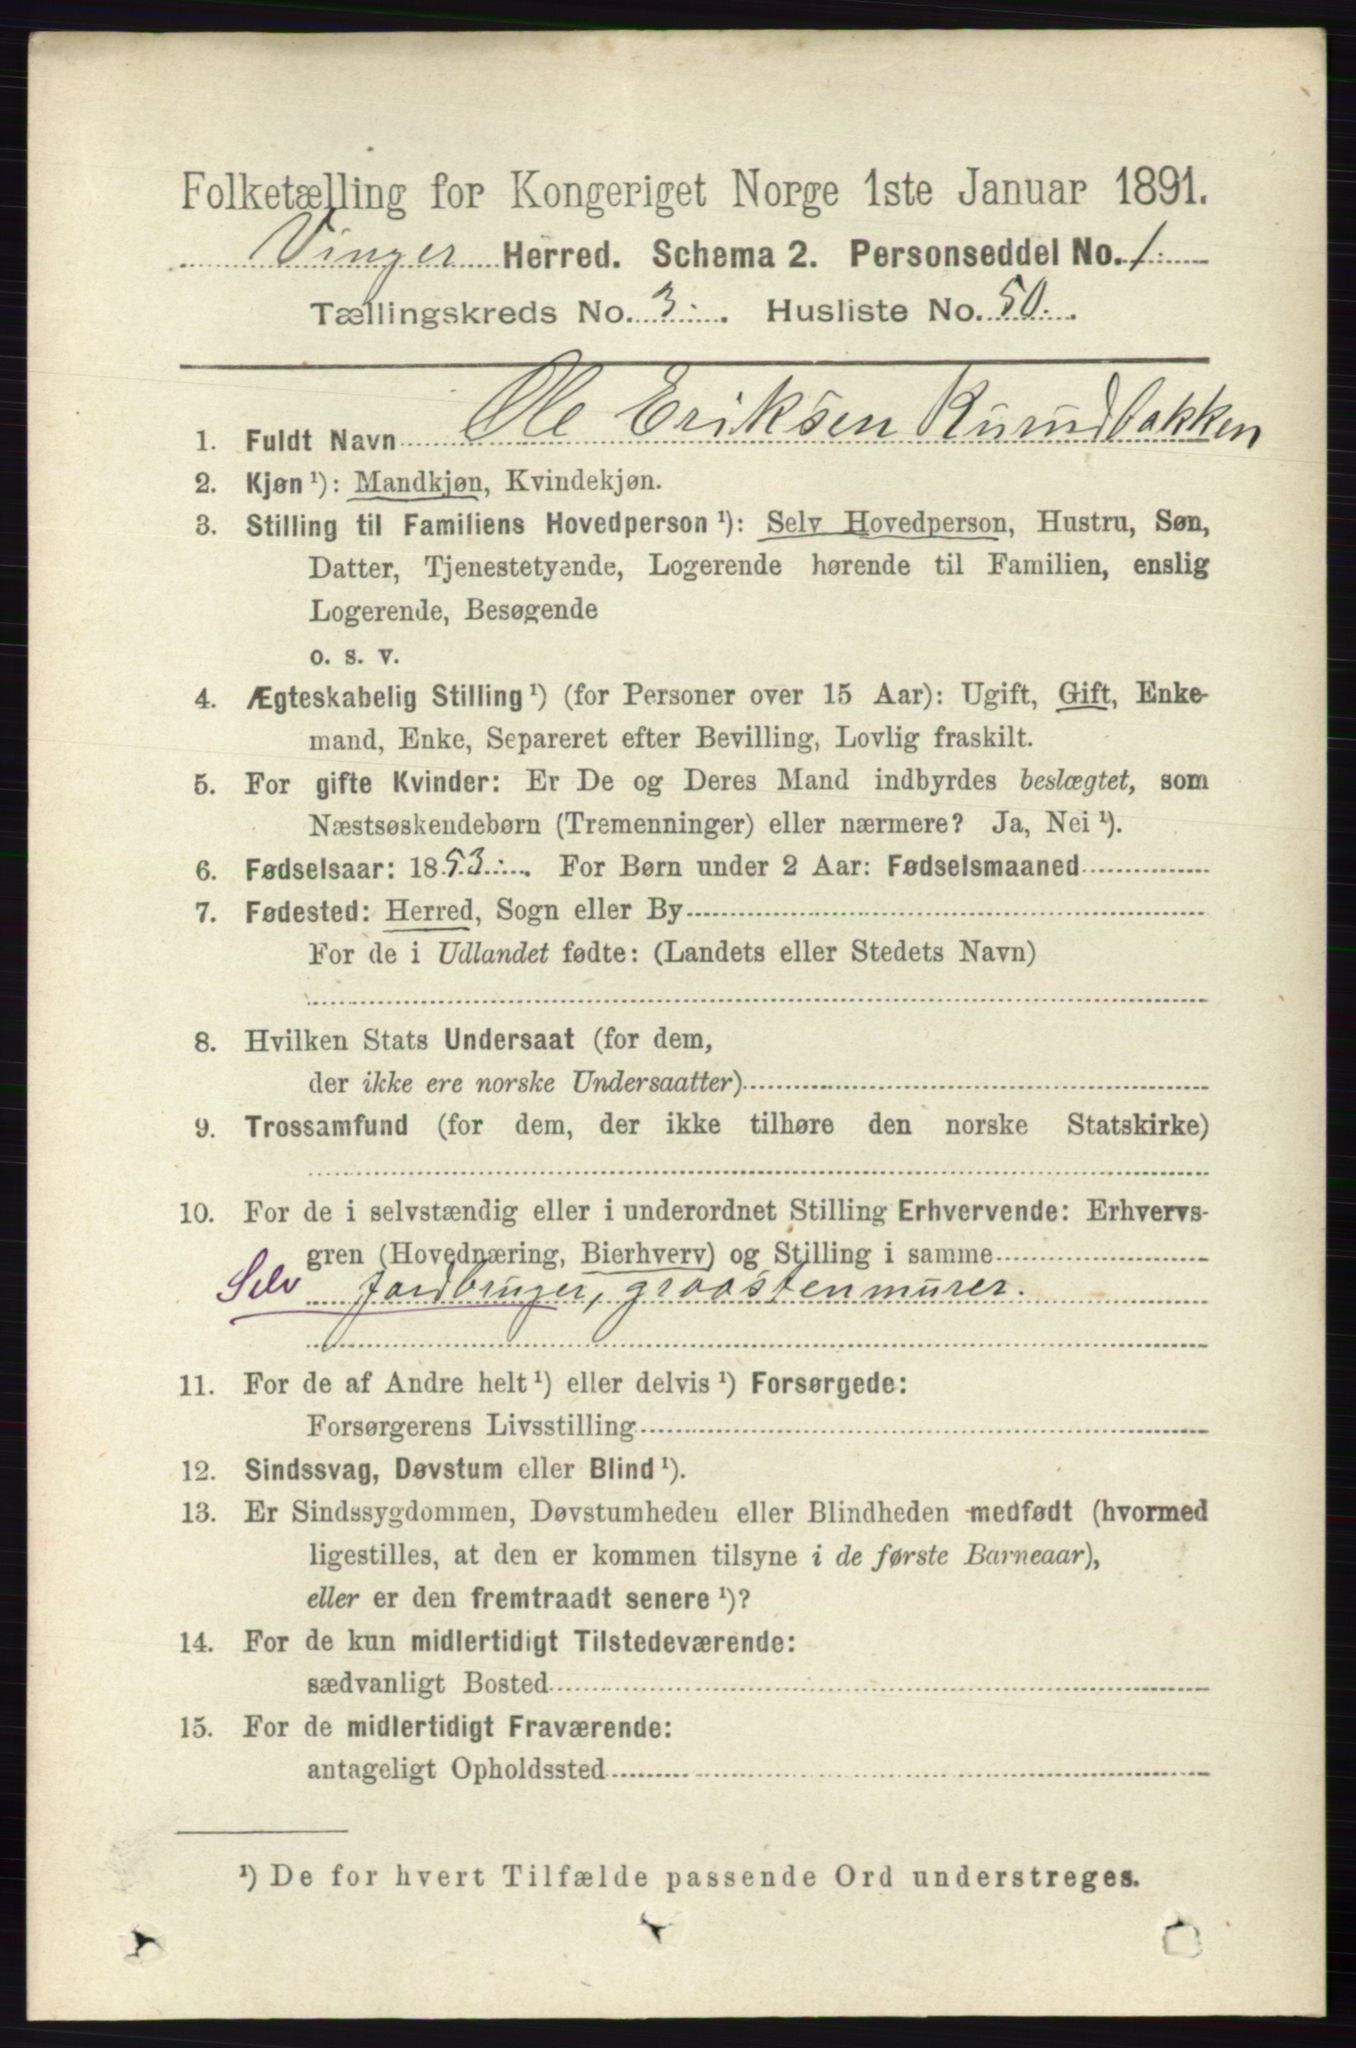 Folketælling for Kongeriget Norge 1ste Januar 1891.
Vinger Herred. Schema 2. Personseddel No. 1.
Tællingskreds No. 3. Husliste No. 50.
1. Fuldt Navn Ole Eriksen Kurudbakken
2. Kjøn ¹): Mandkjøn, Kvindekjøn.
3. Stilling til Familiens Hovedperson ¹): Selv Hovedperson, Hustru, Søn,
Datter, Tjenestetyende, Logerende hørende til Familien, enslig
Logerende, Besøgende
o. s. v.
4. Ægteskabelig Stilling ¹) (for Personer over 15 Aar): Ugift, Gift, Enke-
mand, Enke, Separeret efter Bevilling, Lovlig fraskilt.
5. For gifte Kvinder: Er De og Deres Mand indbyrdes beslægtet, som
Næstsøskendebørn (Tremenninger) eller nærmere? Ja, Nei ¹).
6. Fødselsaar: 1853. For Børn under 2 Aar: Fødselsmaaned
7. Fødested: Herred, Sogn eller By
For de i Udlandet fødte: (Landets eller Stedets Navn)
8. Hvilken Stats Undersaat (for dem,
der ikke ere norske Undersaatter)
9. Trossamfund (for dem, der ikke tilhøre den norske Statskirke)
10. For de i selvstændig eller i underordnet Stilling Erhvervende: Erhvervs-
gren (Hovednæring, Bierhverv) og Stilling i samme
Selv Jordbruger, graastenmurer.
11. For de af Andre helt ¹) eller delvis ¹) Forsørgede:
Forsørgerens Livsstilling
12. Sindssvag, Døvstum eller Blind ¹).
13. Er Sindssygdommen, Døvstumheden eller Blindheden medfødt (hvormed
ligestilles, at den er kommen tilsyne i de første Barneaar),
eller er den fremtraadt senere ¹)?
14. For de kun midlertidigt Tilstedeværende:
sædvanligt Bosted
15. For de midlertidigt Fraværende:
antageligt Opholdssted
¹) De for hvert Tilfælde passende Ord understreges.